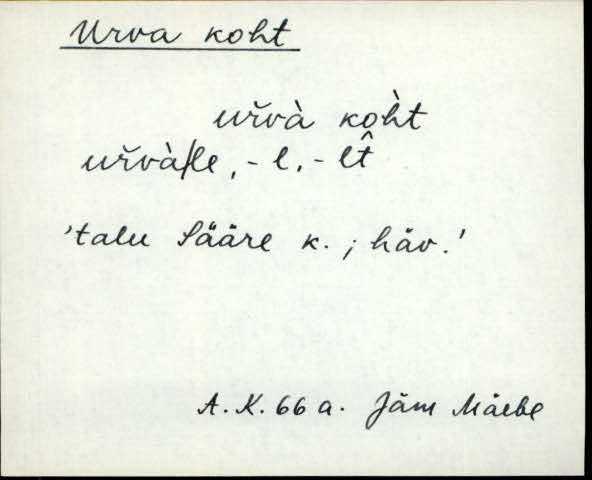 Urva koht
uřvà koh̀t
uřvà/le, -l, -lt̂
'talu Sääre k.; häv.'
A.K. 66 a. Jäm Mäebe